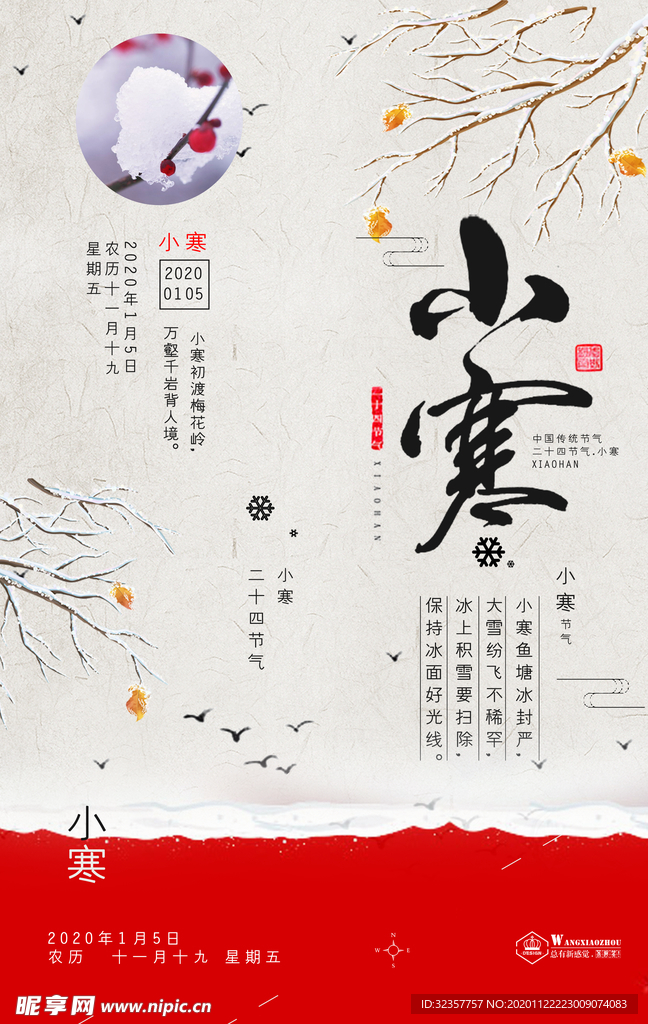 小寒
2020
0105
2020年1月5日
农历十一月十九
星期五
小寒初渡梅花岭,
万壑千岩背人境。
小寒
二十四节气
XIAOHAN
中国传统节气
二十四节气.小寒
XIAOHAN
小寒
二十四节气
小寒节气
小寒鱼塘冰封严,
大雪纷飞不稀罕,
冰上积雪要扫除,
保持冰面好光线。
小寒
2020年1月5日
农历 十一月十九 星期五
N
W E
S
DESIGN
WANGXIAOZHOU
总有新感觉.
昵享网 www.nipic.cn
ID:32357757 NO:20201122223009074083